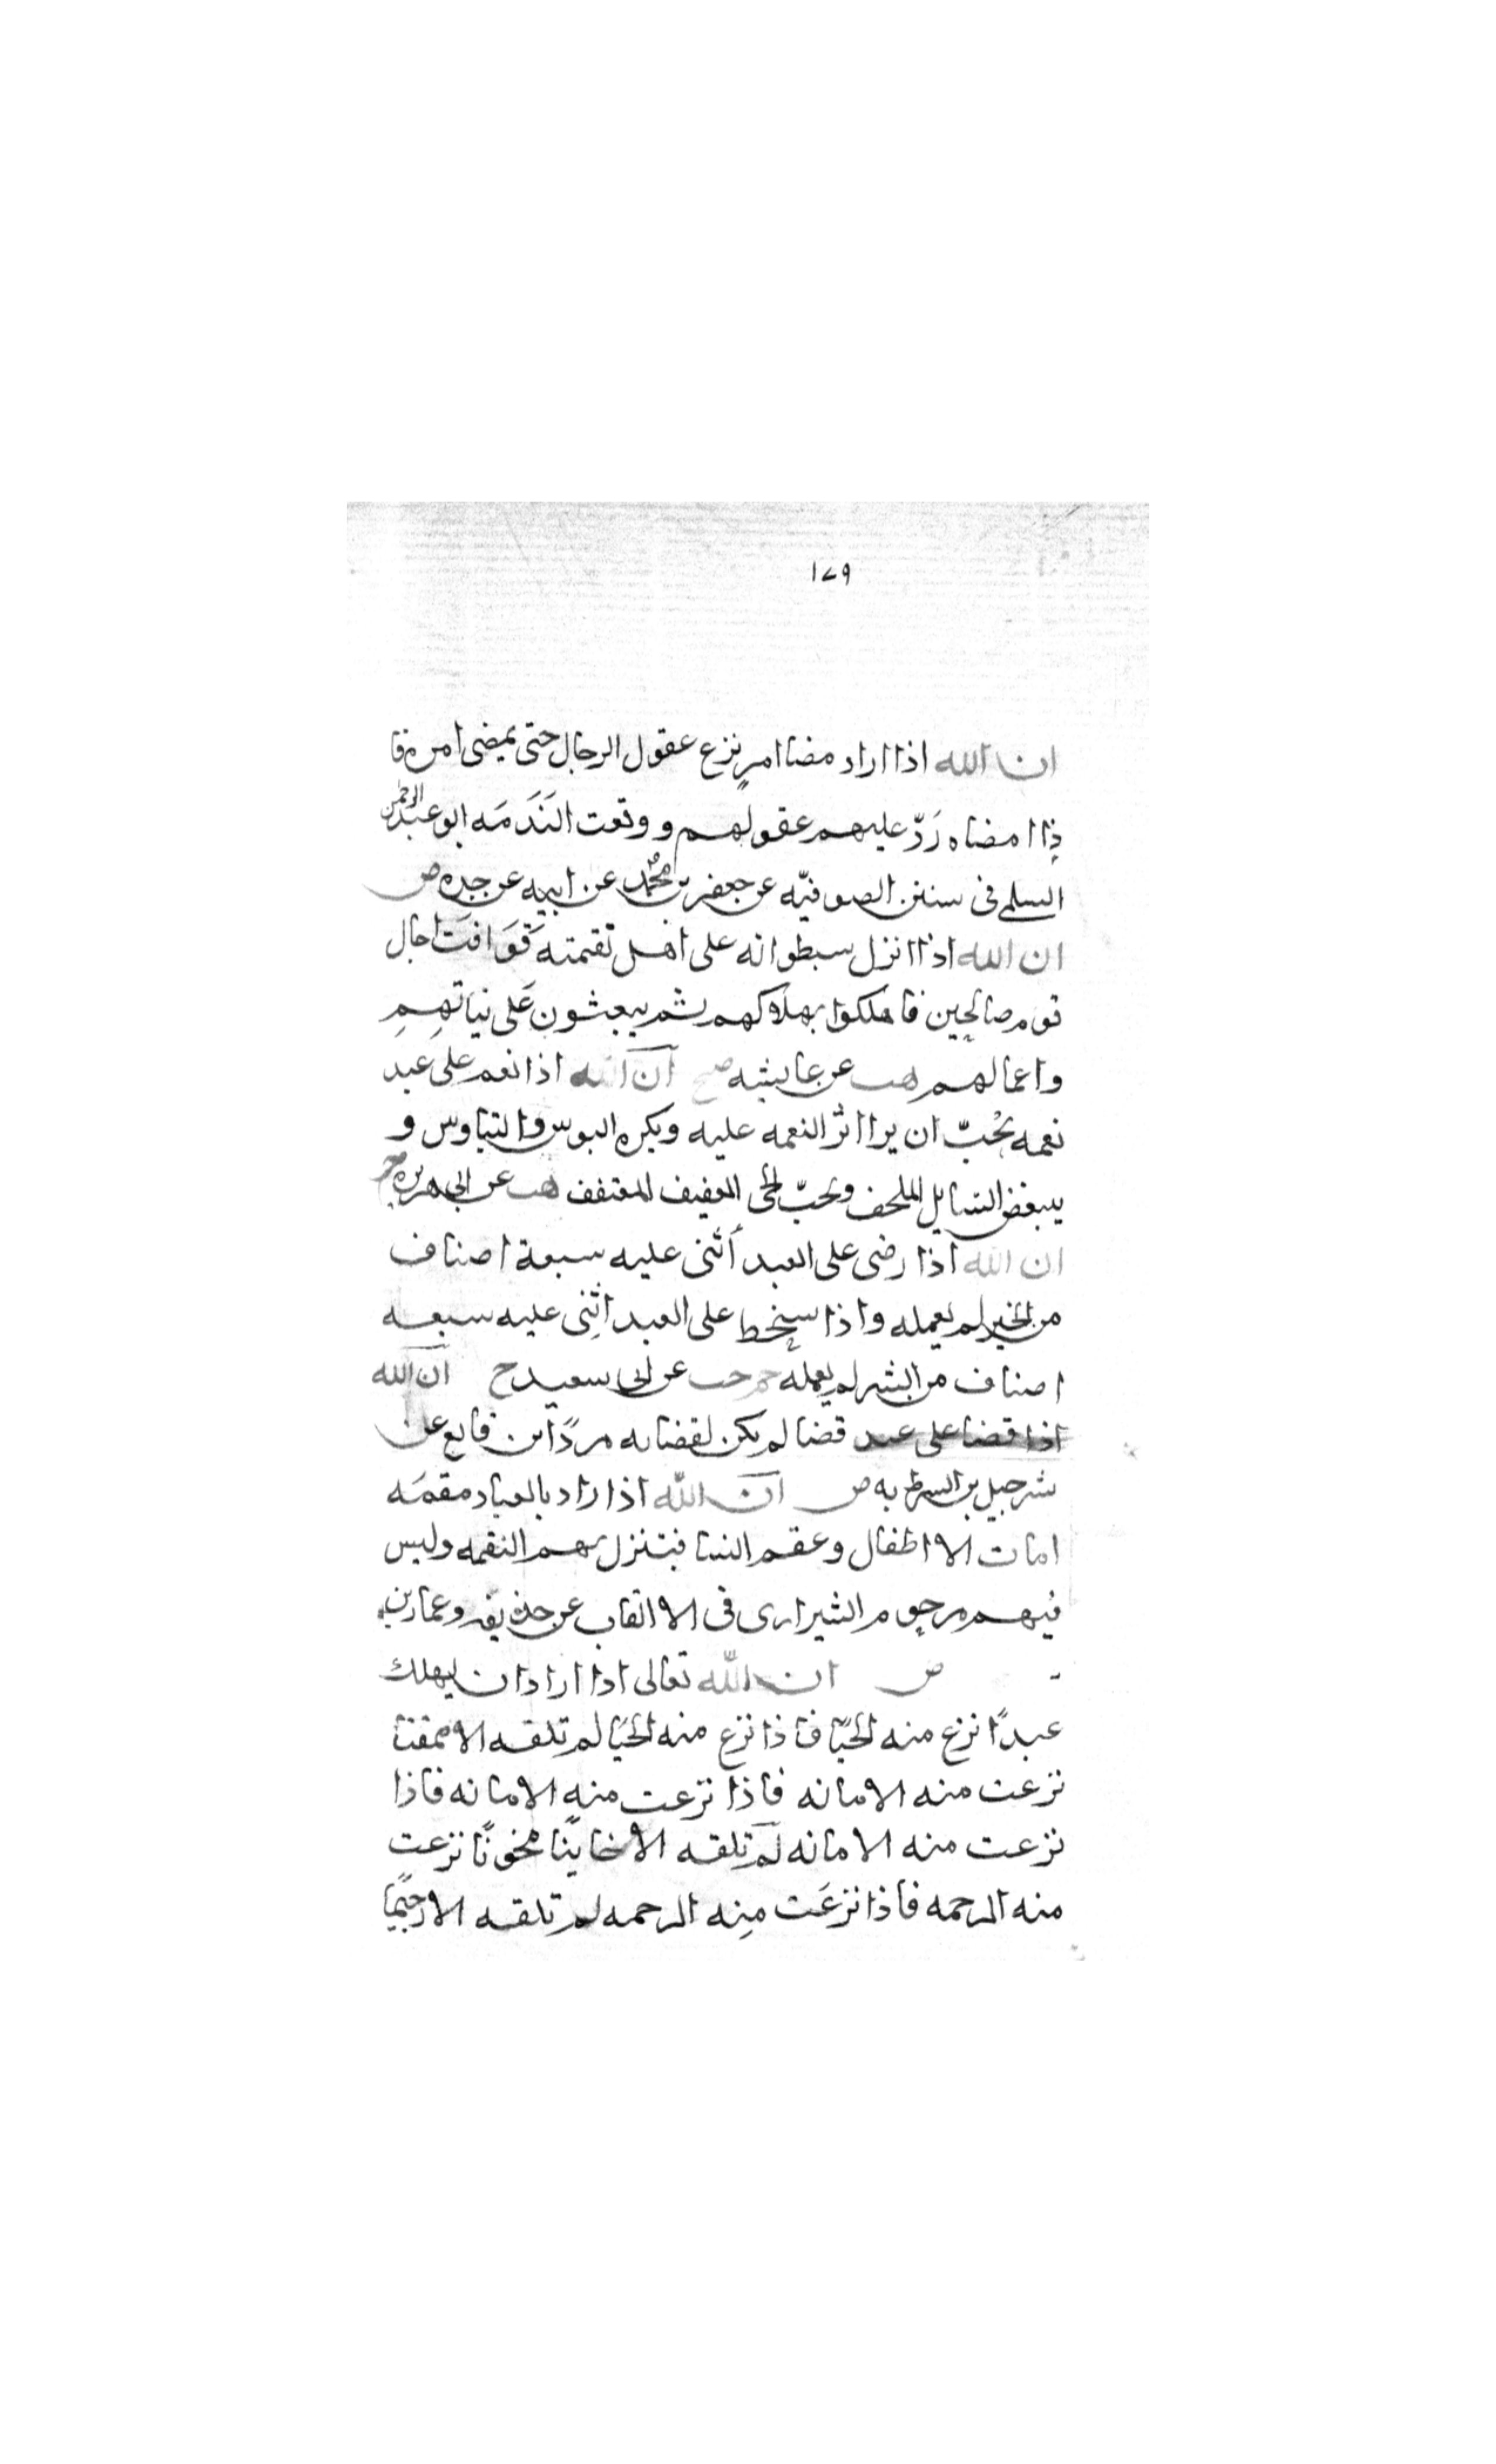 ١٧٩
ان الله اذا اراد مضا امر نزع عقول الرجال حتى يمضى امره فا
ذا امضاه رَدّ عليهم عقولهم ووقعت النَدَمَه ابو عبد الرحمن
السلمى فى سنن الصوفيّه عن جعفر بن محمد عن ابيه عن جده ض
ان الله اذا انزل سطواته على اهل نقمته فوافت اجال
قوم صالحين فاهلكوا بهلاكهم ثم يبعثون على نياتهم
واعمالهم هب عن عايشه صح ان الله اذا نعم على عبد
نعمه يحُبّ ان يرا اثر النعمه عليه ويكره البوس والتباوس و
يبغض السايل الملحف ويحبّ الحى العفيف المعتفف هب عن ابى هريره
ان الله اذا رضى على العبد أثنى عليه سبعة اصناف
من الخير لم يعمله واذا سخط على العبد اثنِى عليه سبعه
اصناف من الشر لم يعمله حم حب عن ابى سعيد ح ان الله
اذا قضا على عبد قضا لم يكن لقضايه مردًا ابن قانع عن
شرحبيل بن السمط به ض ان الله اذا راد بالعباد نقمَه
امات الاطفال وعقم النسا فتنزل بهم النقمه وليس
فيهم مرحوم الشيرازى فى الالقاب عن حذيفه وعمار بن
ض ان الله تعالى اذا اراد ان يهلك
عبدًا نزع منه الحيَا فاذا نزع منه الحيَا لم تلقه الا ممقتا
نزعت منه الامانه فاذا نزعت منه الامانه فاذا
نزعت منه الامانه لم تلقه الا خاينًا مخونًا نزعت
منه الرحمه فاذا نزعَت منِه الرحمه لم تلقه الا رجيمًا